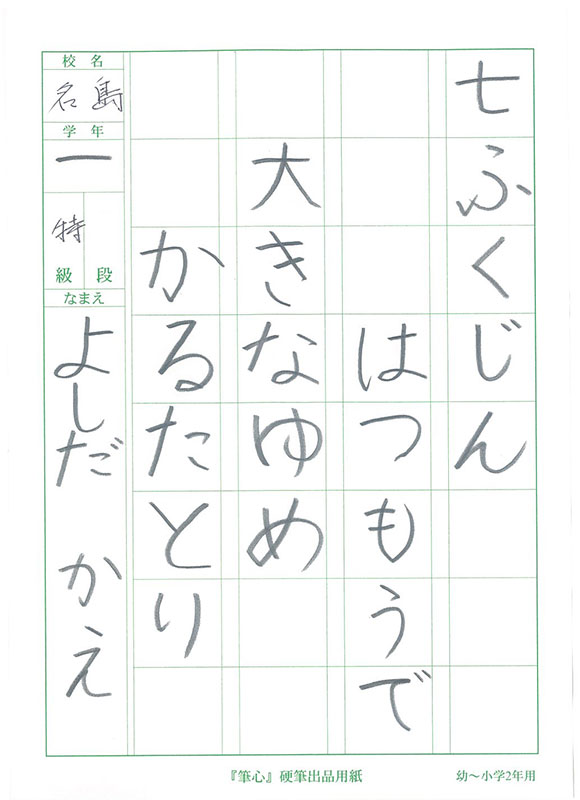 七ふくじん
はつもうで
大きなゆめ
かるたとり
校名
名島
学年
一
特
級 段
なまえ
よしだ かえ
『筆心』硬筆出品用紙
幼〜小学2年用